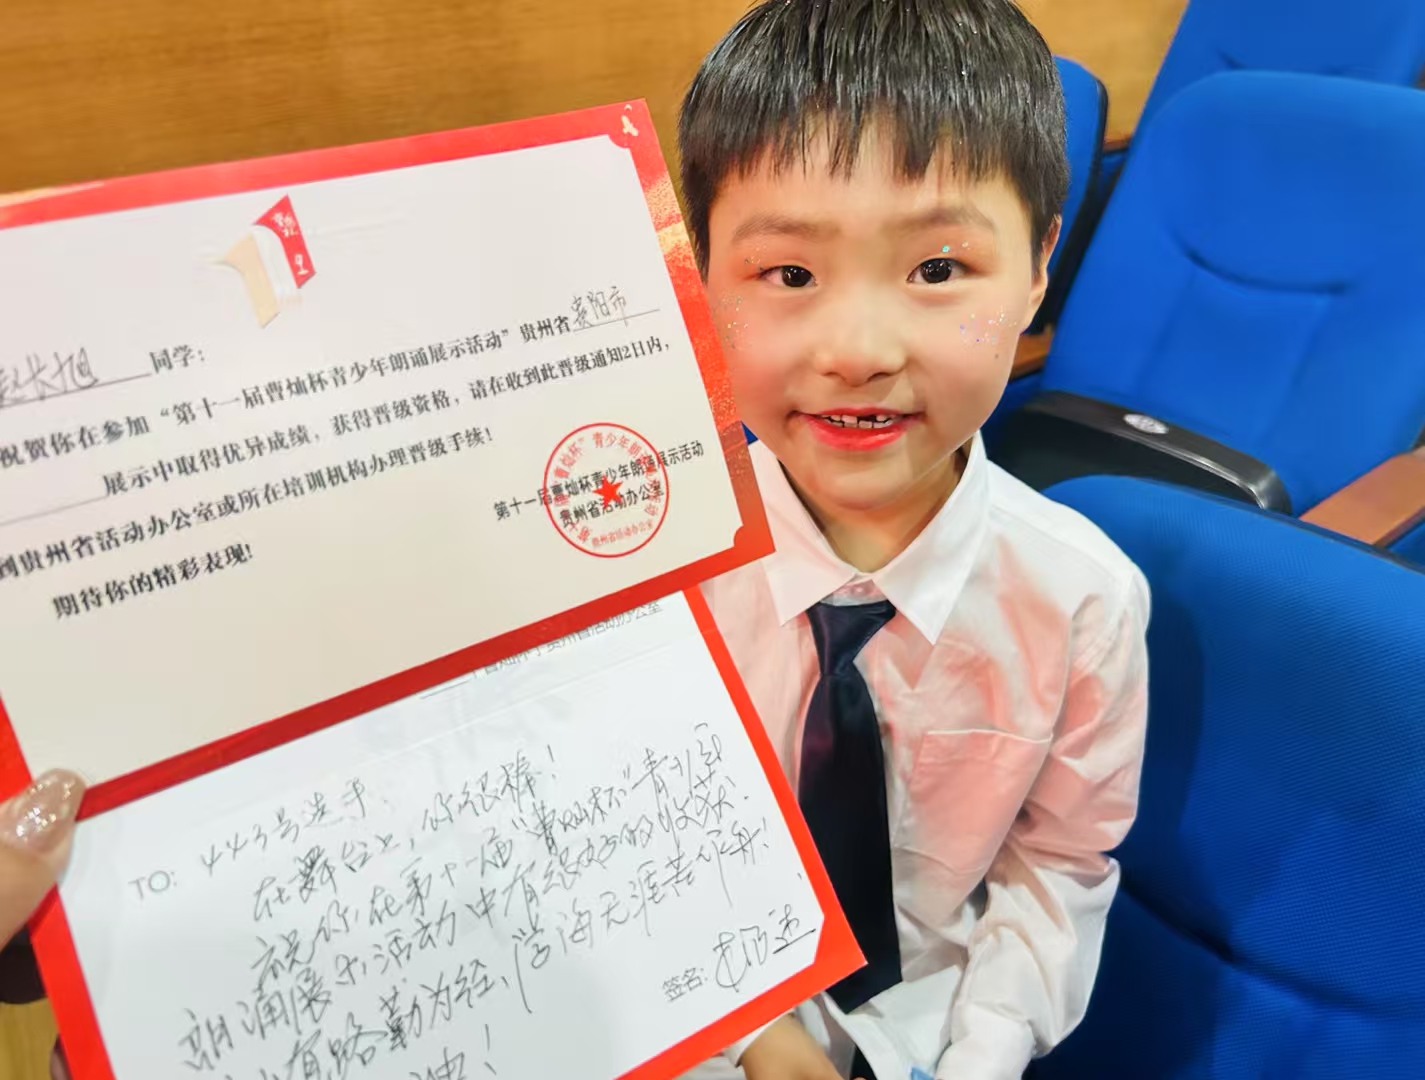 赵长旭 同学：
祝贺你在参加“第十一届曹灿杯青少年朗诵展示活动”贵州省贵阳市
展示中取得优异成绩，获得晋级资格，请在收到此晋级通知2日内，
到贵州省活动办公室或所在培训机构办理晋级手续！
期待你的精彩表现!
第十一届曹灿杯青少年朗诵展示活动
贵州省活动办公室
贵州省活动办公室
TO: 443号选手：
在舞台上，你很棒！
祝你在第十一届“曹灿杯”青少年
朗诵展示活动中有很好的收获.
有路勤为经，学海无涯苦作舟！
签名: